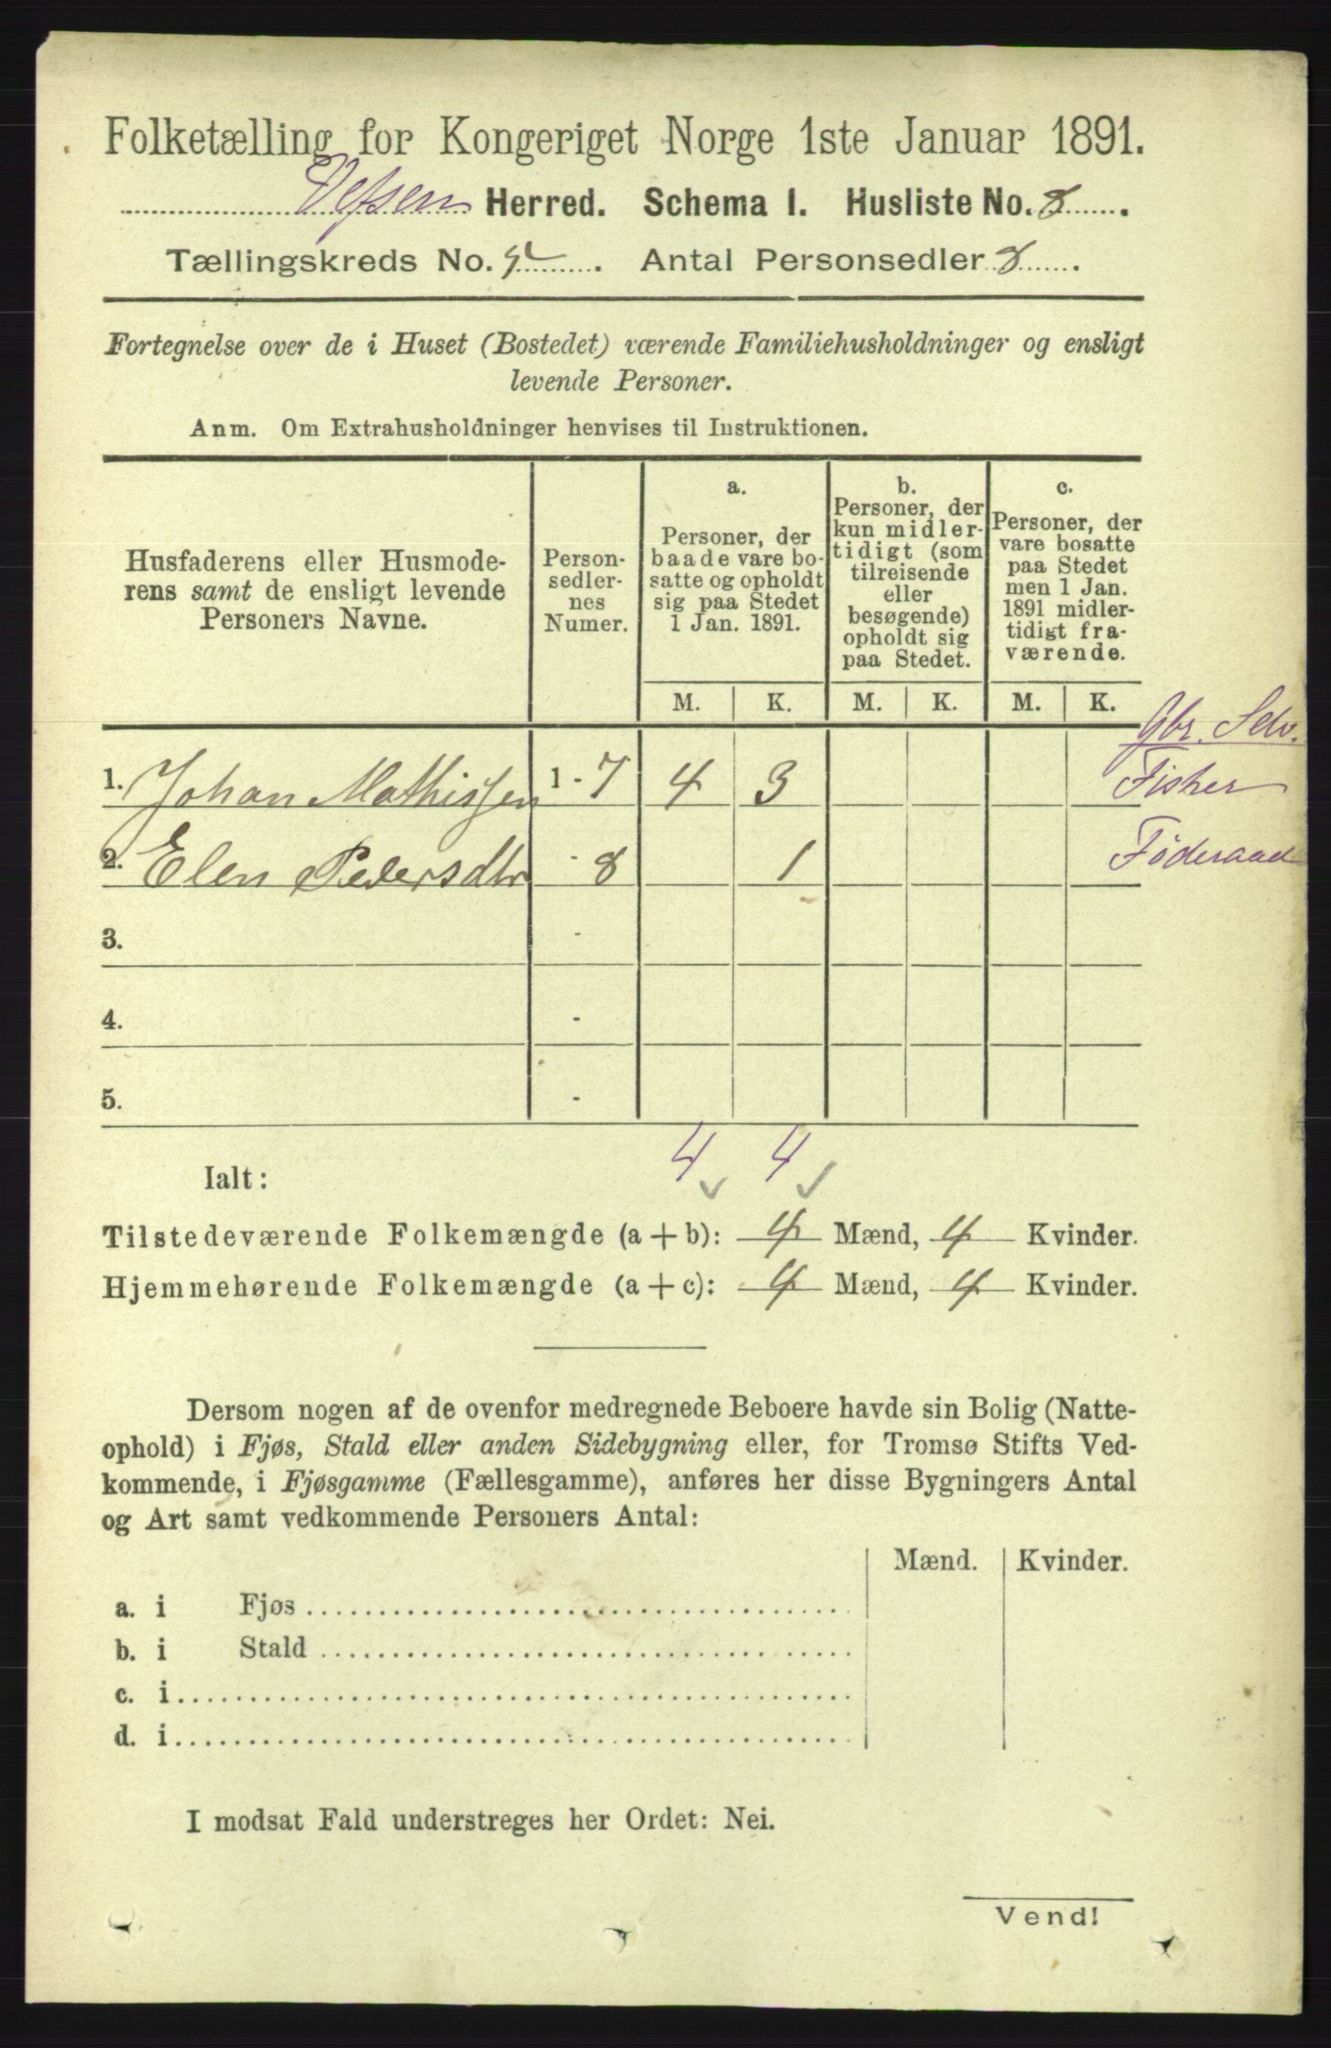 Folketælling for Kongeriget Norge 1ste Januar 1891.
Vefsen Herred. Schema I. Husliste No. 8
Tællingskreds No. Antal Personsedler 8
Fortegnelse over de i Huset (Bostedet) værende Familiehusholdninger og ensligt
levende Personer.
Anm. Om Extrahusholdninger henvises til Instruktionen.
Husfaderens eller Husmode-
rens samt de ensligt levende
Personers Navne.
Person-
sedler-
nes
Numer.
a.
Personer, der
baade vare bo-
satte og opholdt
sig paa Stedet
1 Jan. 1891.
b.
Personer, der
kun midler-
tidigt (som
tilreisende
eller
besøgende)
opholdt sig
paa Stedet.
c.
Personer, der
vare bosatte
paa Stedet
men 1 Jan.
1891 midler-
tidigt fra-
værende.
M. K. M. K. M. K.
Gbr. Selv.
1. Johan Mathissen 1 - 7 4 3 Fisker
2. Elen Pedersdtr - 8 1 Føderaad
3. -
4. -
5. -
Ialt: 4 4
Tilstedeværende Folkemængde (a + b): 4 Mænd, 4 Kvinder.
Hjemmehørende Folkemængde (a + c): 4 Mænd, 4 Kvinder.
Dersom nogen af de ovenfor medregnede Beboere havde sin Bolig (Natte-
ophold) i Fjøs, Stald eller anden Sidebygning eller, for Tromsø Stifts Ved-
kommende, i Fjøsgamme (Fællesgamme), anføres her disse Bygningers Antal
og Art samt vedkommende Personers Antal:
Mænd. Kvinder.
a. i Fjøs
b. i Stald
c. i
d. i
I modsat Fald understreges her Ordet: Nei.
Vend!